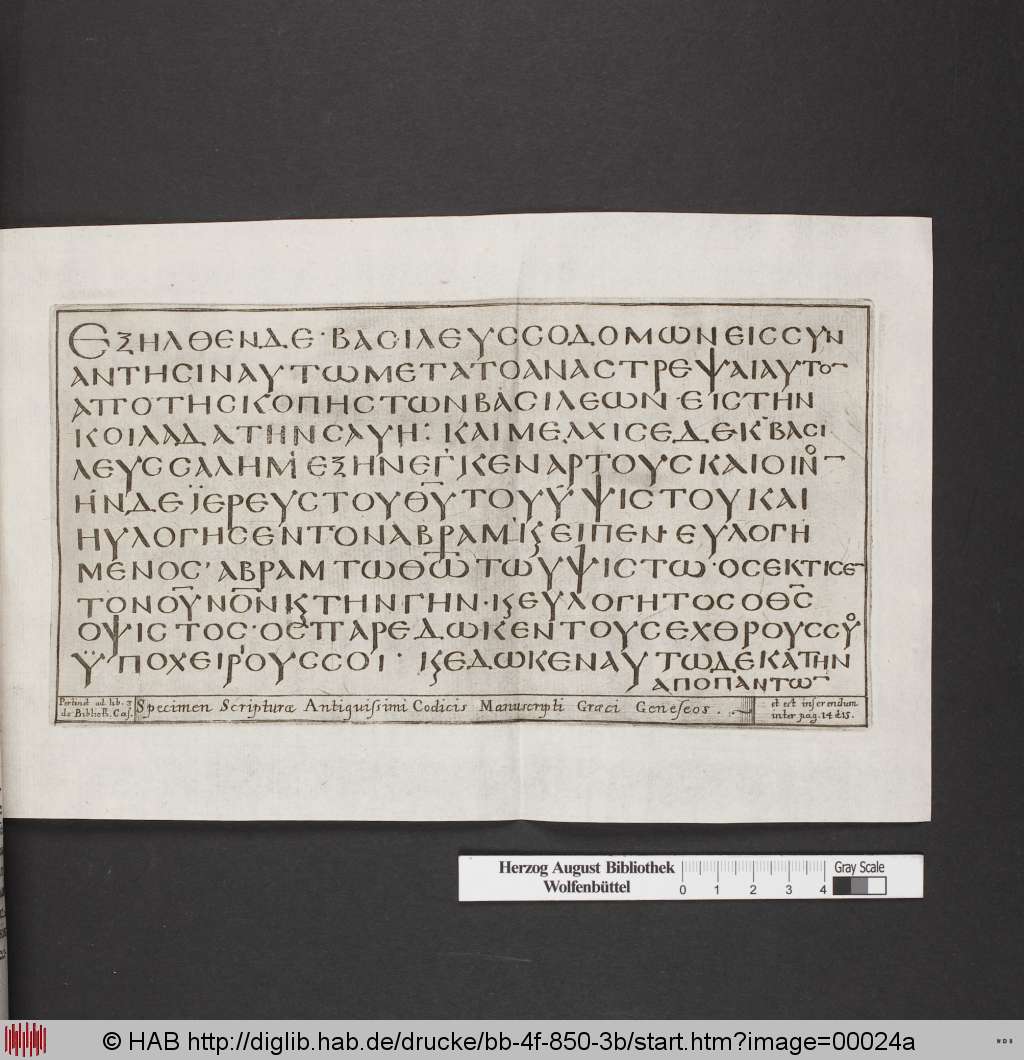 ΕΞΗΛΘΕΝΔΕ · ΒΑCΙΛΕΥCCΟΔΟΜΩΝΕΙCCΥΝ
ΑΝΤΗCΙΝΑΥΤΩΜΕΤΑΤΟΑΝΑCΤΡΕΨΑΙΑΥΤΟ‾
ΑΠΟΤΗCΚΟΠΗCΤΩΝΒΑCΙΛΕΩΝ · ΕΙCΤΗΝ
ΚΟΙΛΑΔΑΤΗΝCΑΥΗ : ΚΑΙΜΕΛΧΙCΕΔΕΚ ΒΑCΙ
ΛΕΥCCΑΛΗΜ ΕΞΗΝΕΓΚΕΝΑΡΤΟΥCΚΑΙΟΙΝΟ‾
ΗΝΔΕΪΕΡΕΥCΤΟΥΘΥ̅ΤΟΥΥΨΙCΤΟΥΚΑΙ
ΗΥΛΟΓΗCΕΝΤΟΝΑΒΡΑΜ·Ϗ ΕΙΠΕΝ · ΕΥΛΟΓΗ
ΜΕΝΟC ’ ΑΒΡΑΜΤΩΘΩ̅ΤΩΥΨΙCΤΩ · ΟCΕΚΤΙCΕ‾
ΤΟΝΟΥ̅ΝΟ̅Ν̅ϏΤΗΝΓΗΝ · ϏΕΥΛΟΓΗΤΟCΟΘC̅
ΟΨΙCΤΟC · ΟCΠΑΡΕΔΩΚΕΝΤΟΥCΕΧΘΡΟΥCCΟΥ
ΫΠΟΧΕΙΡΟΥCCΟΙ · ϏΕΔΩΚΕΝΑΥΤΩΔΕΚΑΤΗΝ
ΑΠΟΠΑΝΤΩ‾
Pertinet ad lib. 3
de Biblioth. Caes.
Specimen Scripturæ Antiquissimi Codicis Manuscripti Græci Geneseos.
et est inserendum
inter pag. 14 et 15.
Herzog August Bibliothek
Wolfenbüttel
0 1 2 3 4
Gray Scale
© HAB http://diglib.hab.de/drucke/bb-4f-850-3b/start.htm?image=00024a